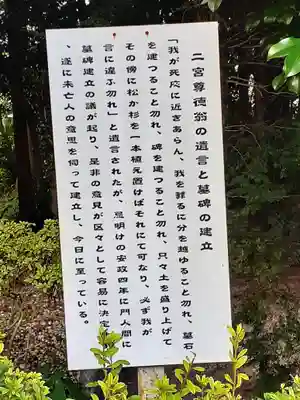 二宮尊徳翁の遺言と墓碑の建立
「我が死応に近きあらん、我を葬るに分を越ゆること勿れ、墓石
を建つること勿れ、碑を建つること勿れ、只々土を盛り上げて
その傍に松か杉を一本植え置けばそれにて可なり、必ず我が
言に違ふ勿れ」と遺言されたが、忌明けの安政四年に門人間に
墓碑建立の議が起り、是非の意見が区々として容易に決定
、遂に未亡人の意思を伺って建立し、今日に至っている。